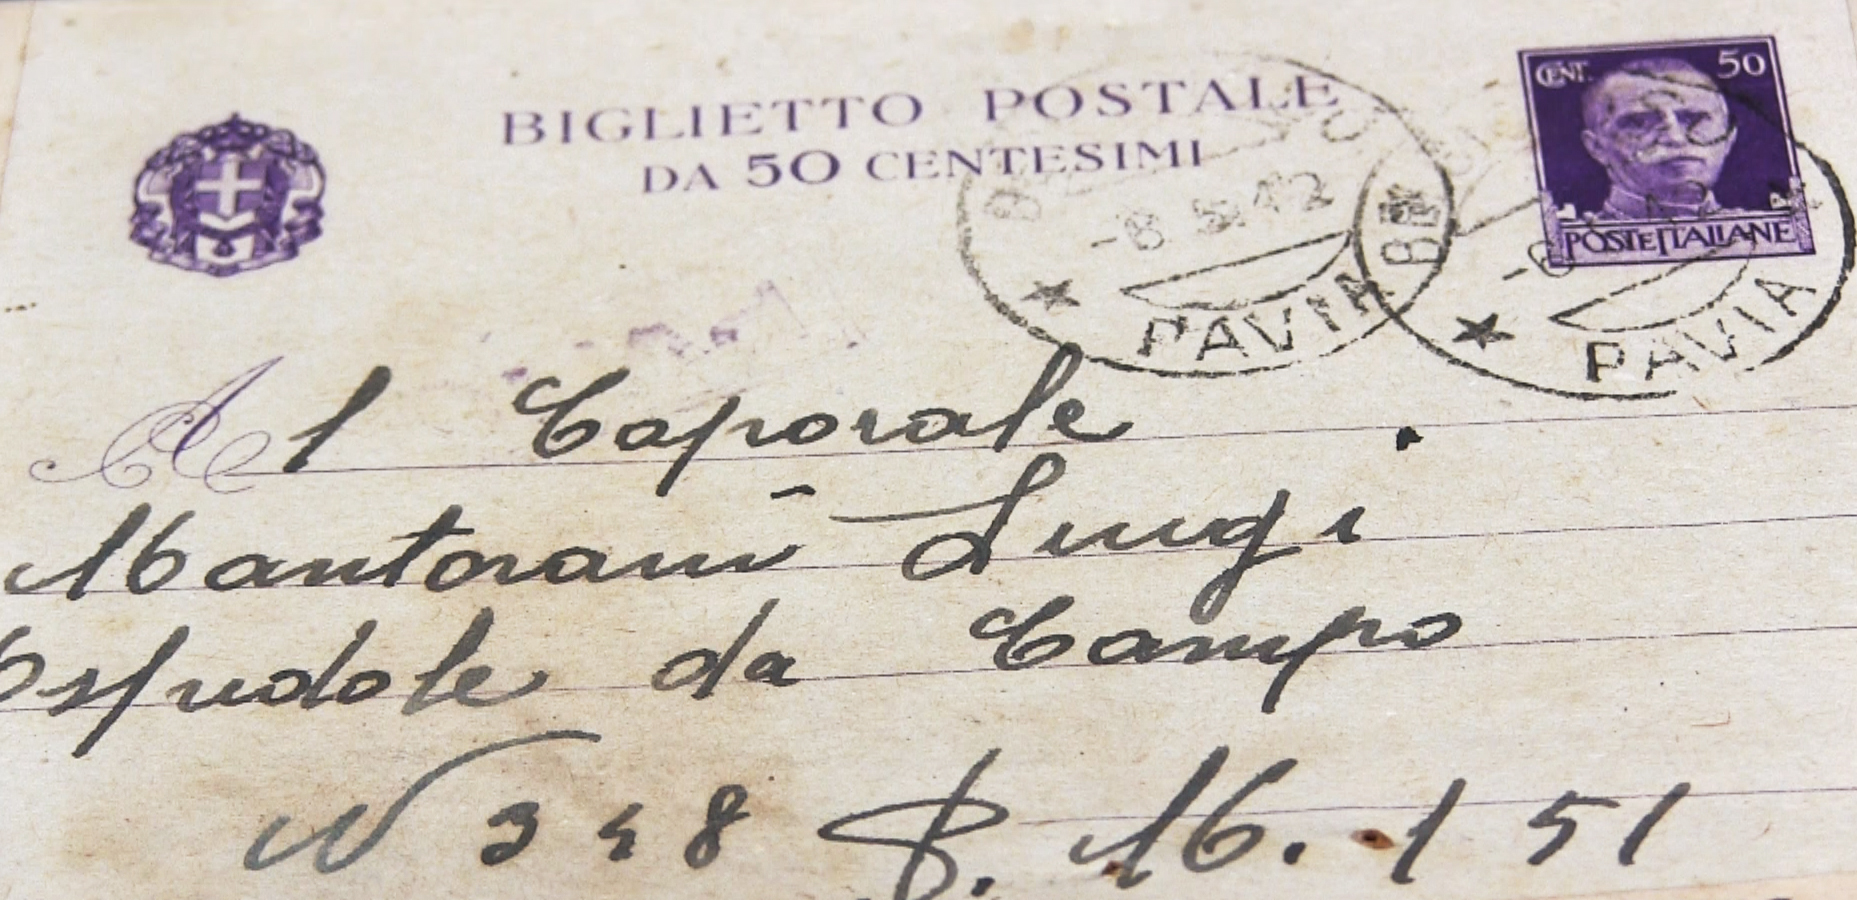 BIGLIETTO POSTALE
DA 50 CENTESIMI
CENT. 50
POSTE ITALIANE
-8 5 42
PAVIA
PAVIA
Al Caporale
Mantovani Luigi
Ospedale da Campo
N 348 P. M. 151